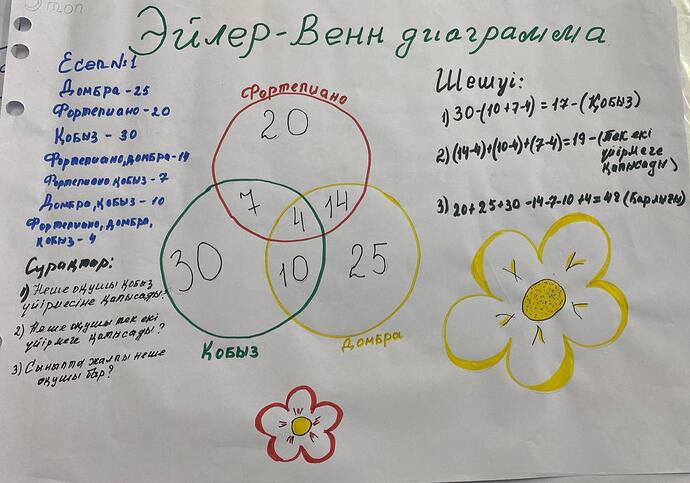 Этоп
Эйлер-Венн диограмма
Есеп №1
Домбра - 25
Фортепиано - 20
Қобыз - 30
Фортепиано, домбра - 14
Фортепиано, қобыз - 7
Домбра, қобыз - 10
Фортепиано, домбра,
қобыз - 4
Сурақтар:
1) Неше оқушы қобыз
үйірмесіне қатысады?
2) Неше оқушы тек екі
үйірмеге қатысады?
3) Сыныпта жалпы неше
оқушы бар?
Фортепиано
20
7
4
14
30
10
25
Қобыз
Домбра
Шешуі:
1) 30-(10+7-4)=17-(Қобыз)
2) (14-4)+(10-4)+(7-4)=19-(тек екі
үйірмеге
қатысады)
3) 20+25+30-14-7-10+4=48 (Барлығы)